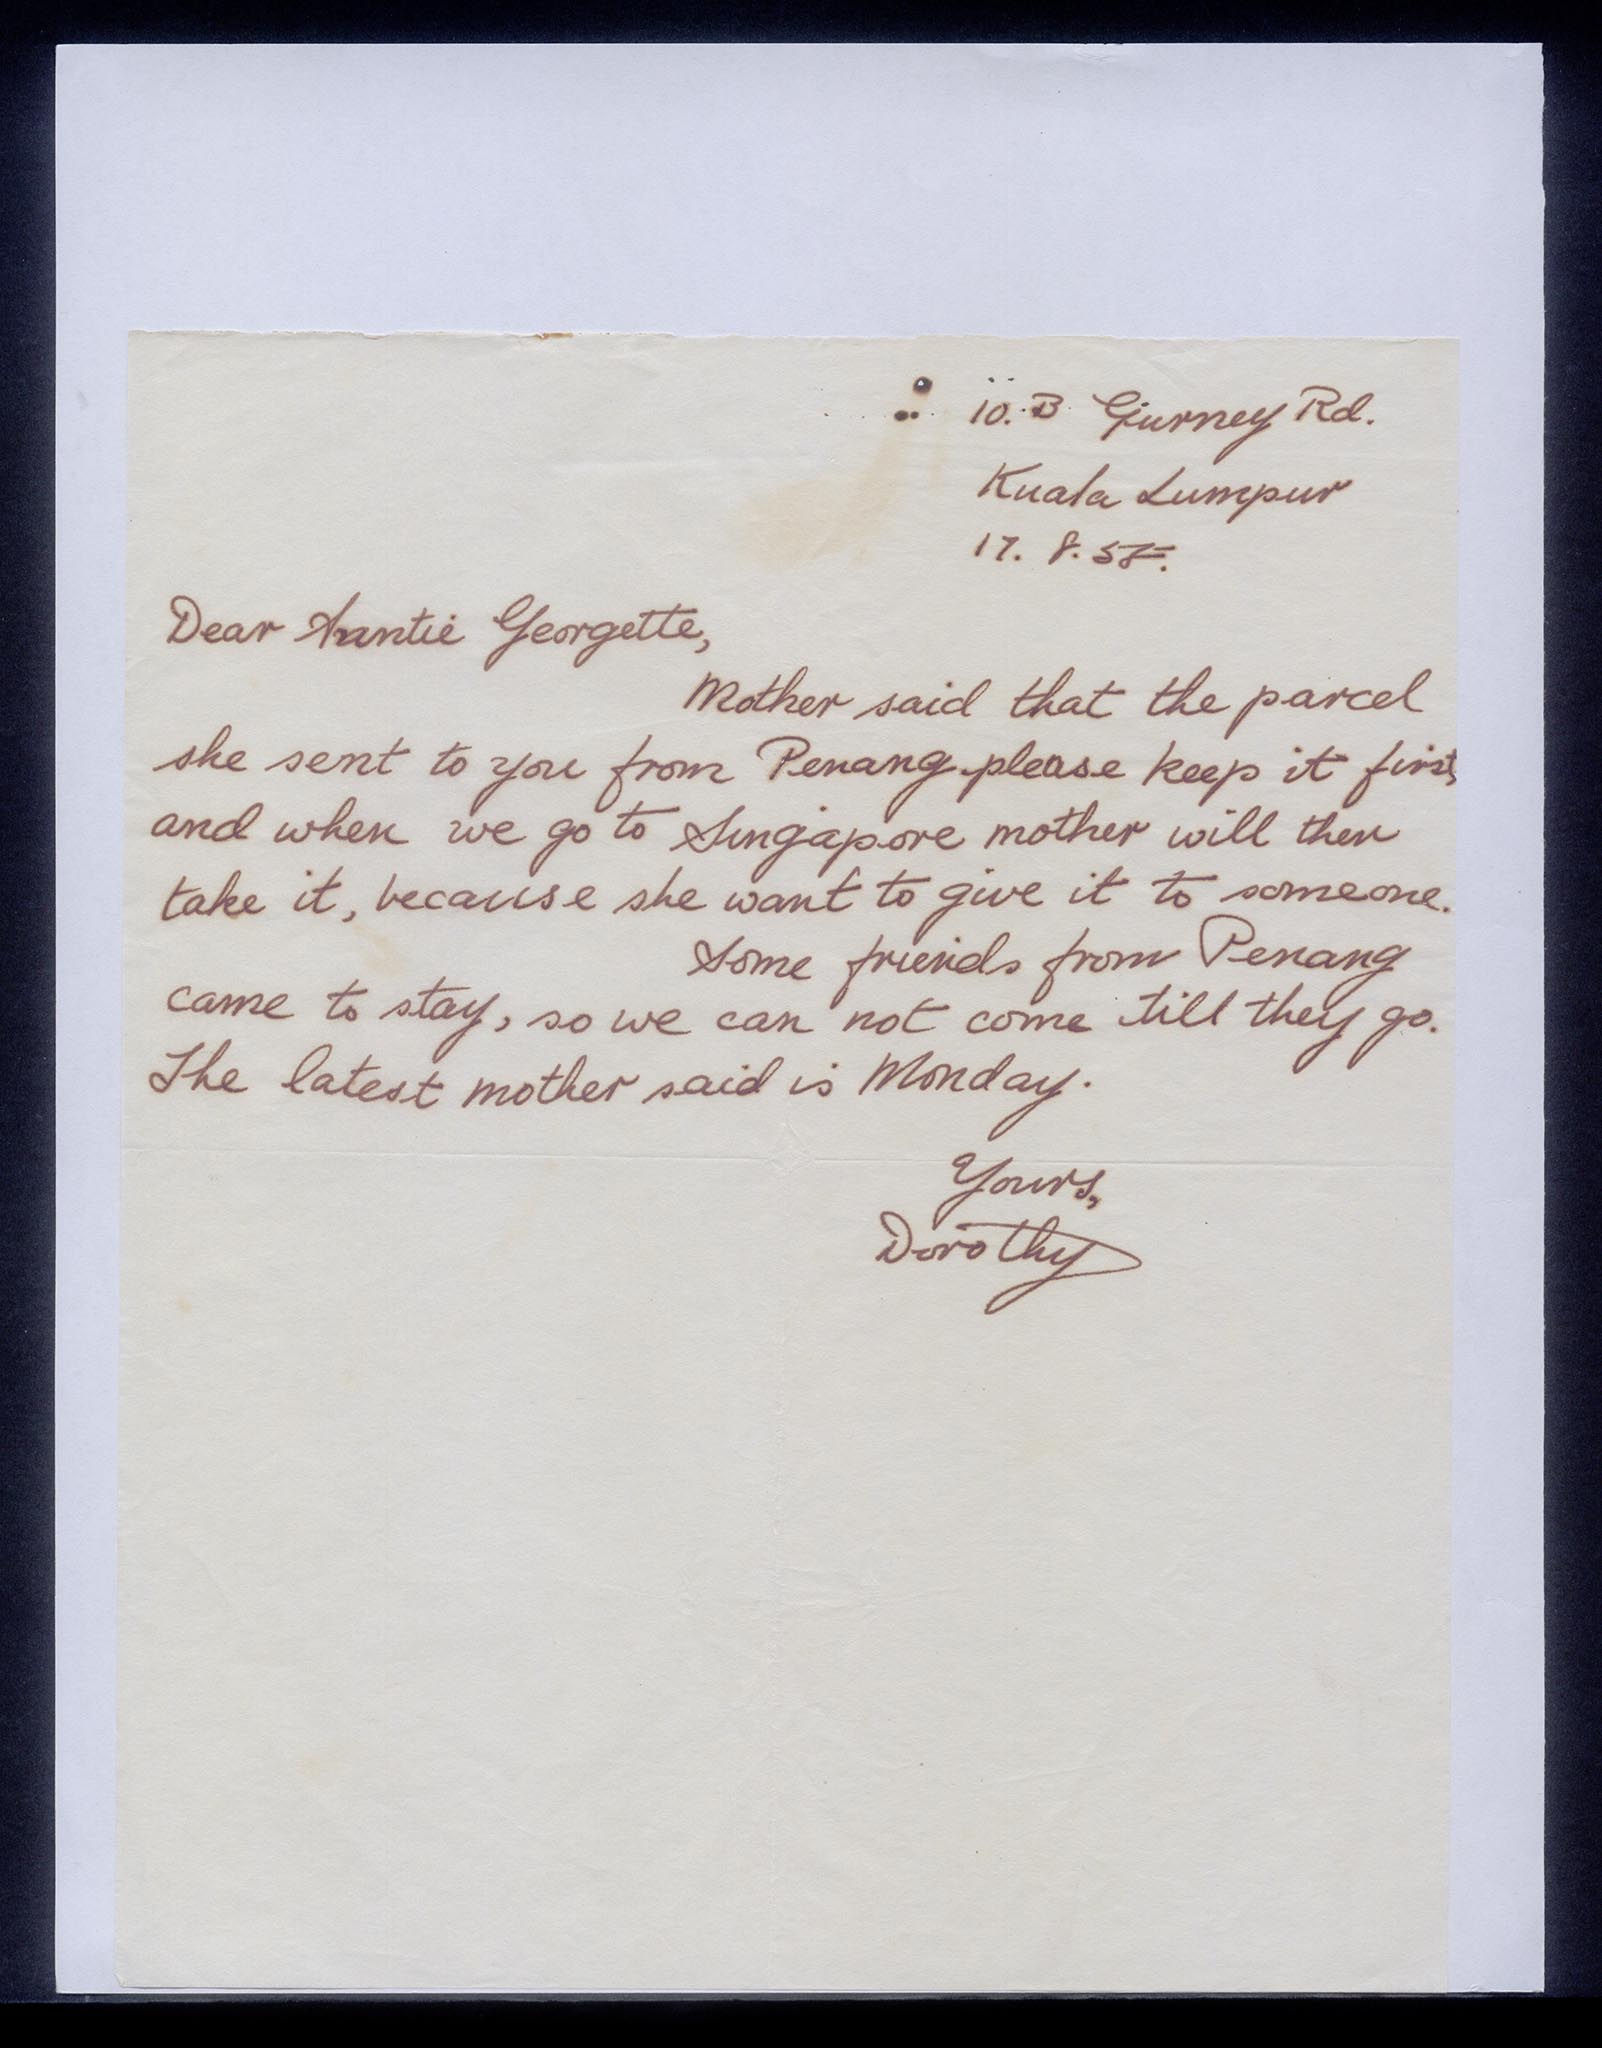 10. B Gurney Rd.
Kuala Lumpur
17. 8.
Dear Auntie Georgette,
Mother said that the parcel
she sent to you from Penang please keep it first,
and when we go to Singapore mother will then
take it, because she want to give it to someone.
Some friends from Penang
came to stay, so we can not come till they go.
The latest mother said is Monday.
Yours,
Dorothy